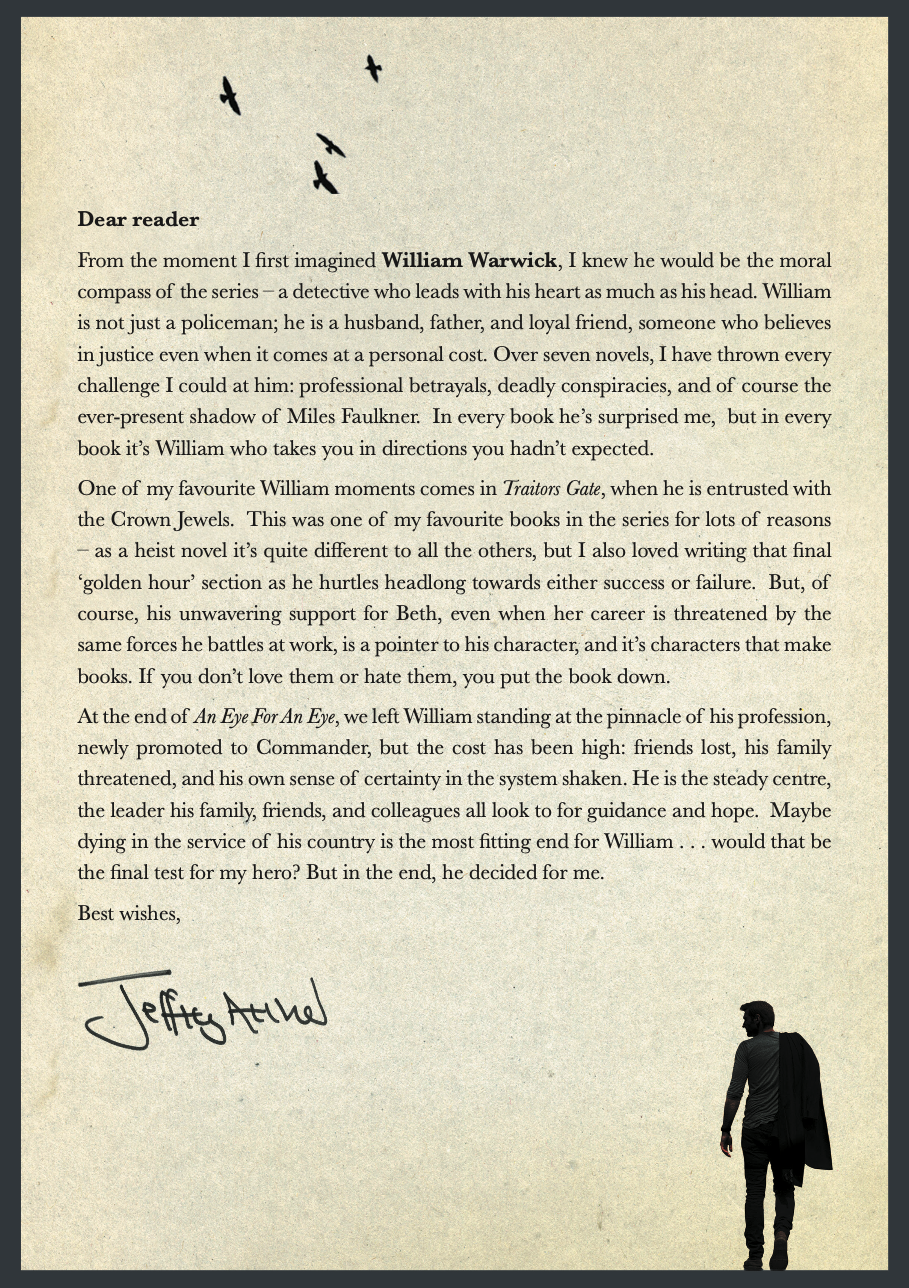 Dear reader
From the moment I first imagined William Warwick, I knew he would be the moral
compass of the series – a detective who leads with his heart as much as his head. William
is not just a policeman; he is a husband, father, and loyal friend, someone who believes
in justice even when it comes at a personal cost. Over seven novels, I have thrown every
challenge I could at him: professional betrayals, deadly conspiracies, and of course the
ever-present shadow of Miles Faulkner.  In every book he’s surprised me,  but in every
book it’s William who takes you in directions you hadn’t expected.
One of my favourite William moments comes in Traitors Gate, when he is entrusted with
the Crown Jewels.  This was one of my favourite books in the series for lots of reasons
– as a heist novel it’s quite different to all the others, but I also loved writing that final
‘golden hour’ section as he hurtles headlong towards either success or failure.  But, of
course, his unwavering support for Beth, even when her career is threatened by the
same forces he battles at work, is a pointer to his character, and it’s characters that make
books. If you don’t love them or hate them, you put the book down.
At the end of An Eye For An Eye, we left William standing at the pinnacle of his profession,
newly promoted to Commander, but the cost has been high: friends lost, his family
threatened, and his own sense of certainty in the system shaken. He is the steady centre,
the leader his family, friends, and colleagues all look to for guidance and hope.  Maybe
dying in the service of his country is the most fitting end for William . . . would that be
the final test for my hero? But in the end, he decided for me.
Best wishes,
Jeffrey Archer